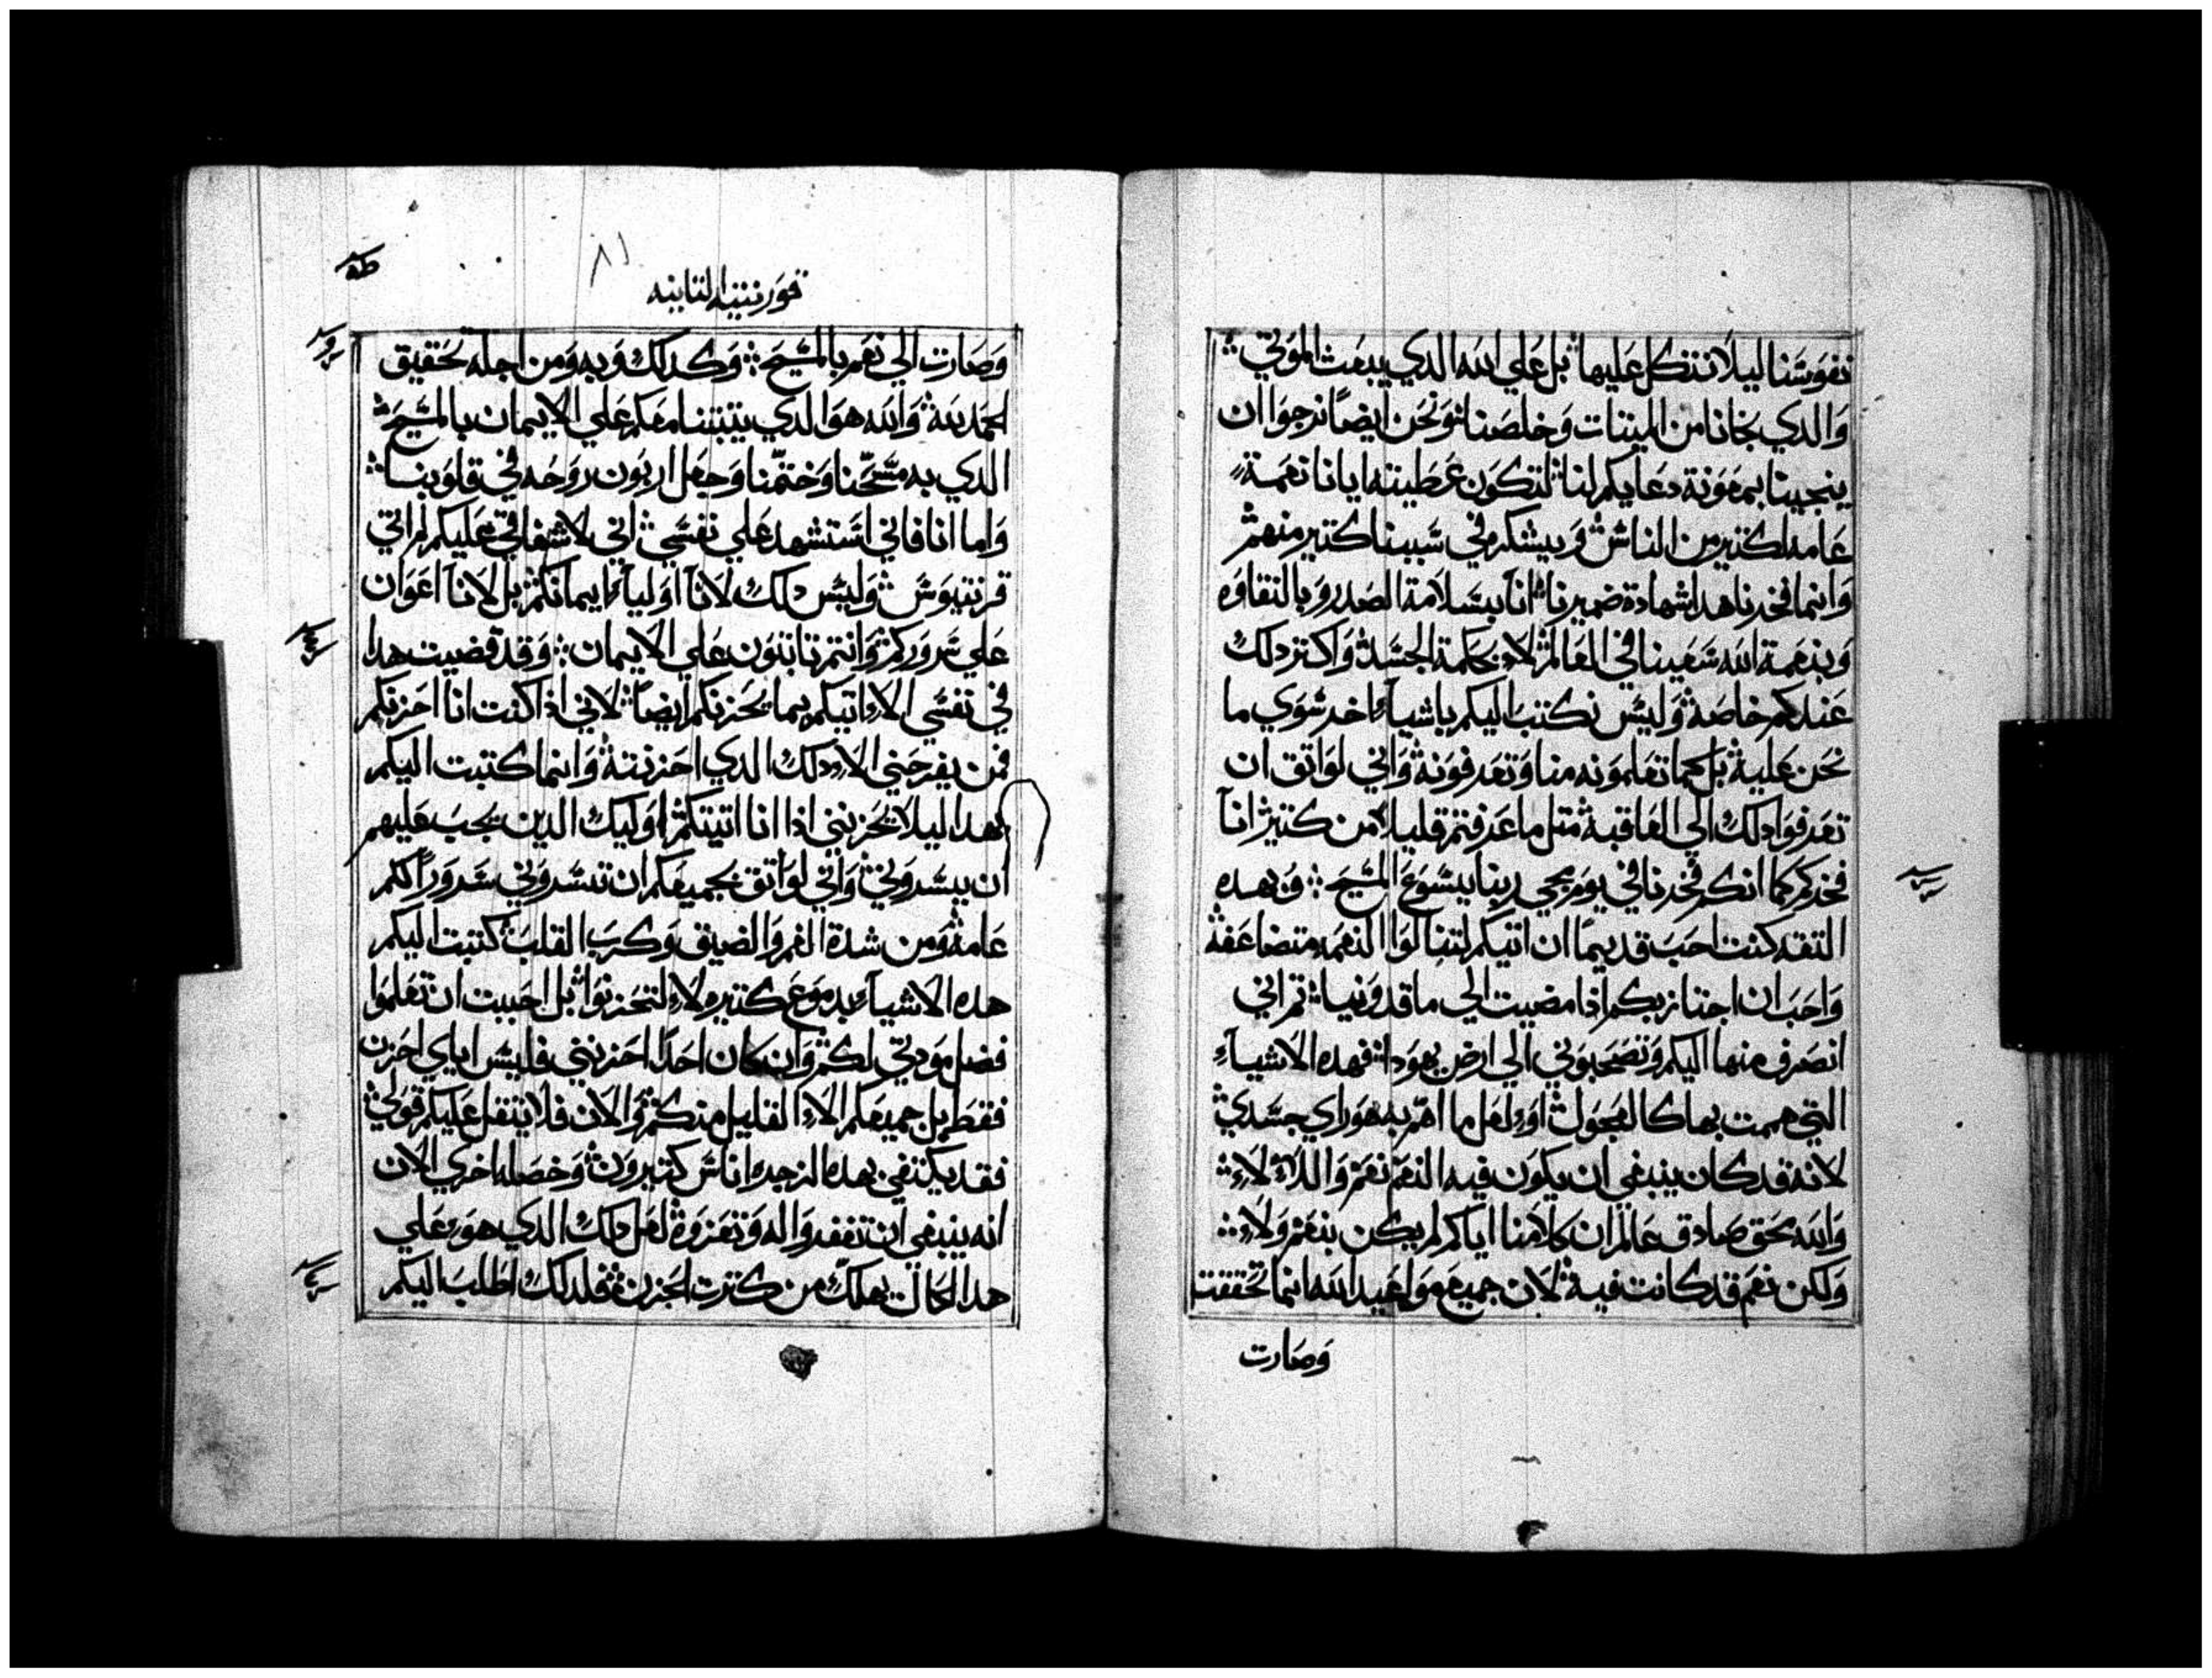 نفوسنا ليلا نتكل عليها بل علي الله الدي يبعث الموتي
والدي نجانا من الميتات وخلصنا ونحن ايضًا نرجوا ان
ينجينا بمعونة دعايكم لنا لتكون عطيته ايانا نعمة
عامه لكتير من الناس ويشكر في سببنا كتير منهم
وانما فخرنا هدا شهادة ضميرنا انا بسلامة الصدر وبالنقاوه
وبنعمة الله سعينا في العالم لا بحكمة الجسد واكتر دلك
عندكم خاصة وليس نكتب اليكم باشياء اخر سوي ما
نحن علية بل كما تعلمونه منا وتعرفونة واني لواتق ان
تعرفوا دلك الي العاقبة متل ما عرفتم قليلا من كتير انا
فخركم كما انكم فخرنا في يوم مجي ربنا يسوع المسيح وبهده
التقه كنت احب قديمًا ان اتيكم لتنالوا النعمه متضاعفه
واحب ان اجتاز بكم ادا مضيت الي ماقدونيا تم اني
انصرف منها اليكم وتصحبوني الي ارض يهودا فهده الاشياء
التي هممت بها كالعجول او لعل ما اهم به هو راي جسدي
لانه قد كان ينبغي ان يكون فيه النعم نعم واللا لا
والله بحق صادق عالم ان كلامنا اياكم لم يكن بنعم ولا
ولكن نعم قد كانت فيه لان جميع مواعيد الله انما تحققت
وصارت
قورنتيه التانيه
وصارت الي نعم بالمسيح وكدلك وبه ومن اجله تحقيق
الحمد لله والله هو الدي يتبتنا معكم علي الايمان بالمسيح
الدي به مسحنا وختمنا وجعل اربون روحه في قلوبنا
واما انا فاني استشهد علي نفسي اني لاشفاقي عليكم لم اتي
قرنتيوس وليس دلك لانا اولياء ايمانكم بل لانا اعوان
علي سروركم وانتم تابتون علي الايمان وقد قضيت هدا
في نفسي الا اتيكم بما يحزنكم ايضًا لاني ادا كنت انا احزنكم
فمن يفرحني الا دلك الدي احزنته وانما كتبت اليكم
بهدا ليلا يحزنني ادا انا اتيتكم اوليك الدين يجب عليهم
ان يسروني واني لواتق بجميعكم ان تسروني سروراكم
عامه ومن شدة الغم والضيق وكرب القلب كتبت اليكم
هده الاشياء بدموع كتيره لا لتحزنوا بل احببت ان تعلموا
فضل مودتي لكم وان كان احدًا احزنني فليس اياي احزن
فقط بل جميعكم الا القليل منكم والان فلا يتقل عليكم قولي
فقد يكتفي بهده الزجره اناس كتيرون وخصله اخري الان
انه ينبغي ان تغفروا له وتعزوة لعل دلك الدي هو علي
هدا الحال يهلك من كترت الحزن فلدلك اطلب اليكم